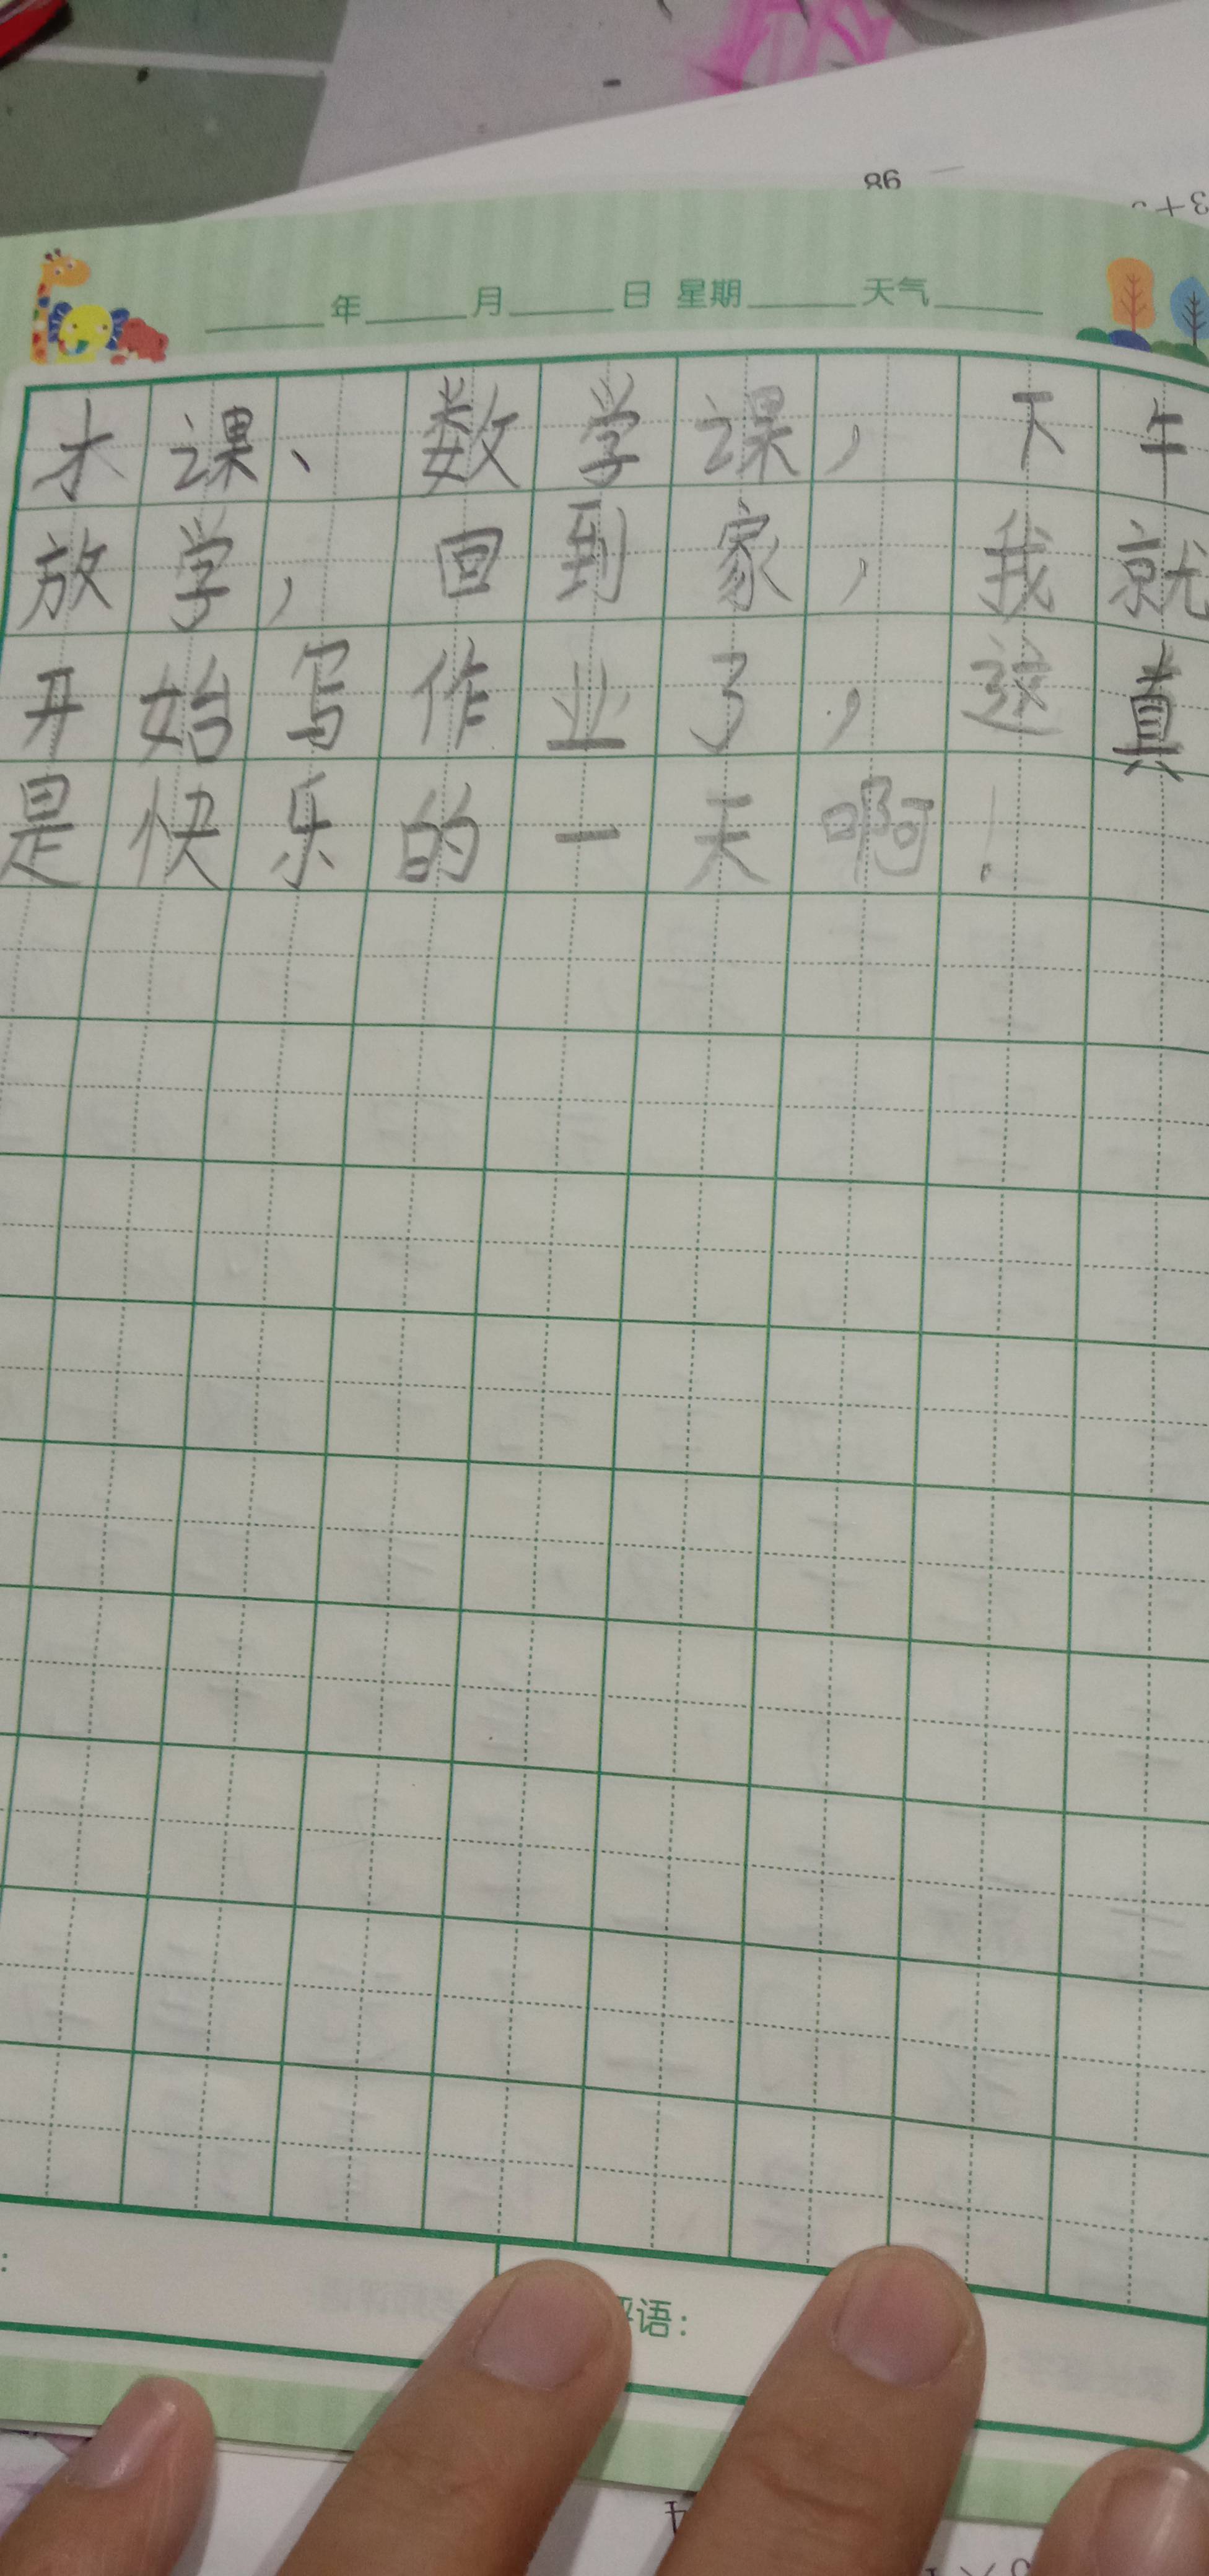 98
3+
年 月 日 星期 天气
术课、数学课，下午
放学，回到家，我就
开始写作业了，这真
是快乐的一天啊！
评语：